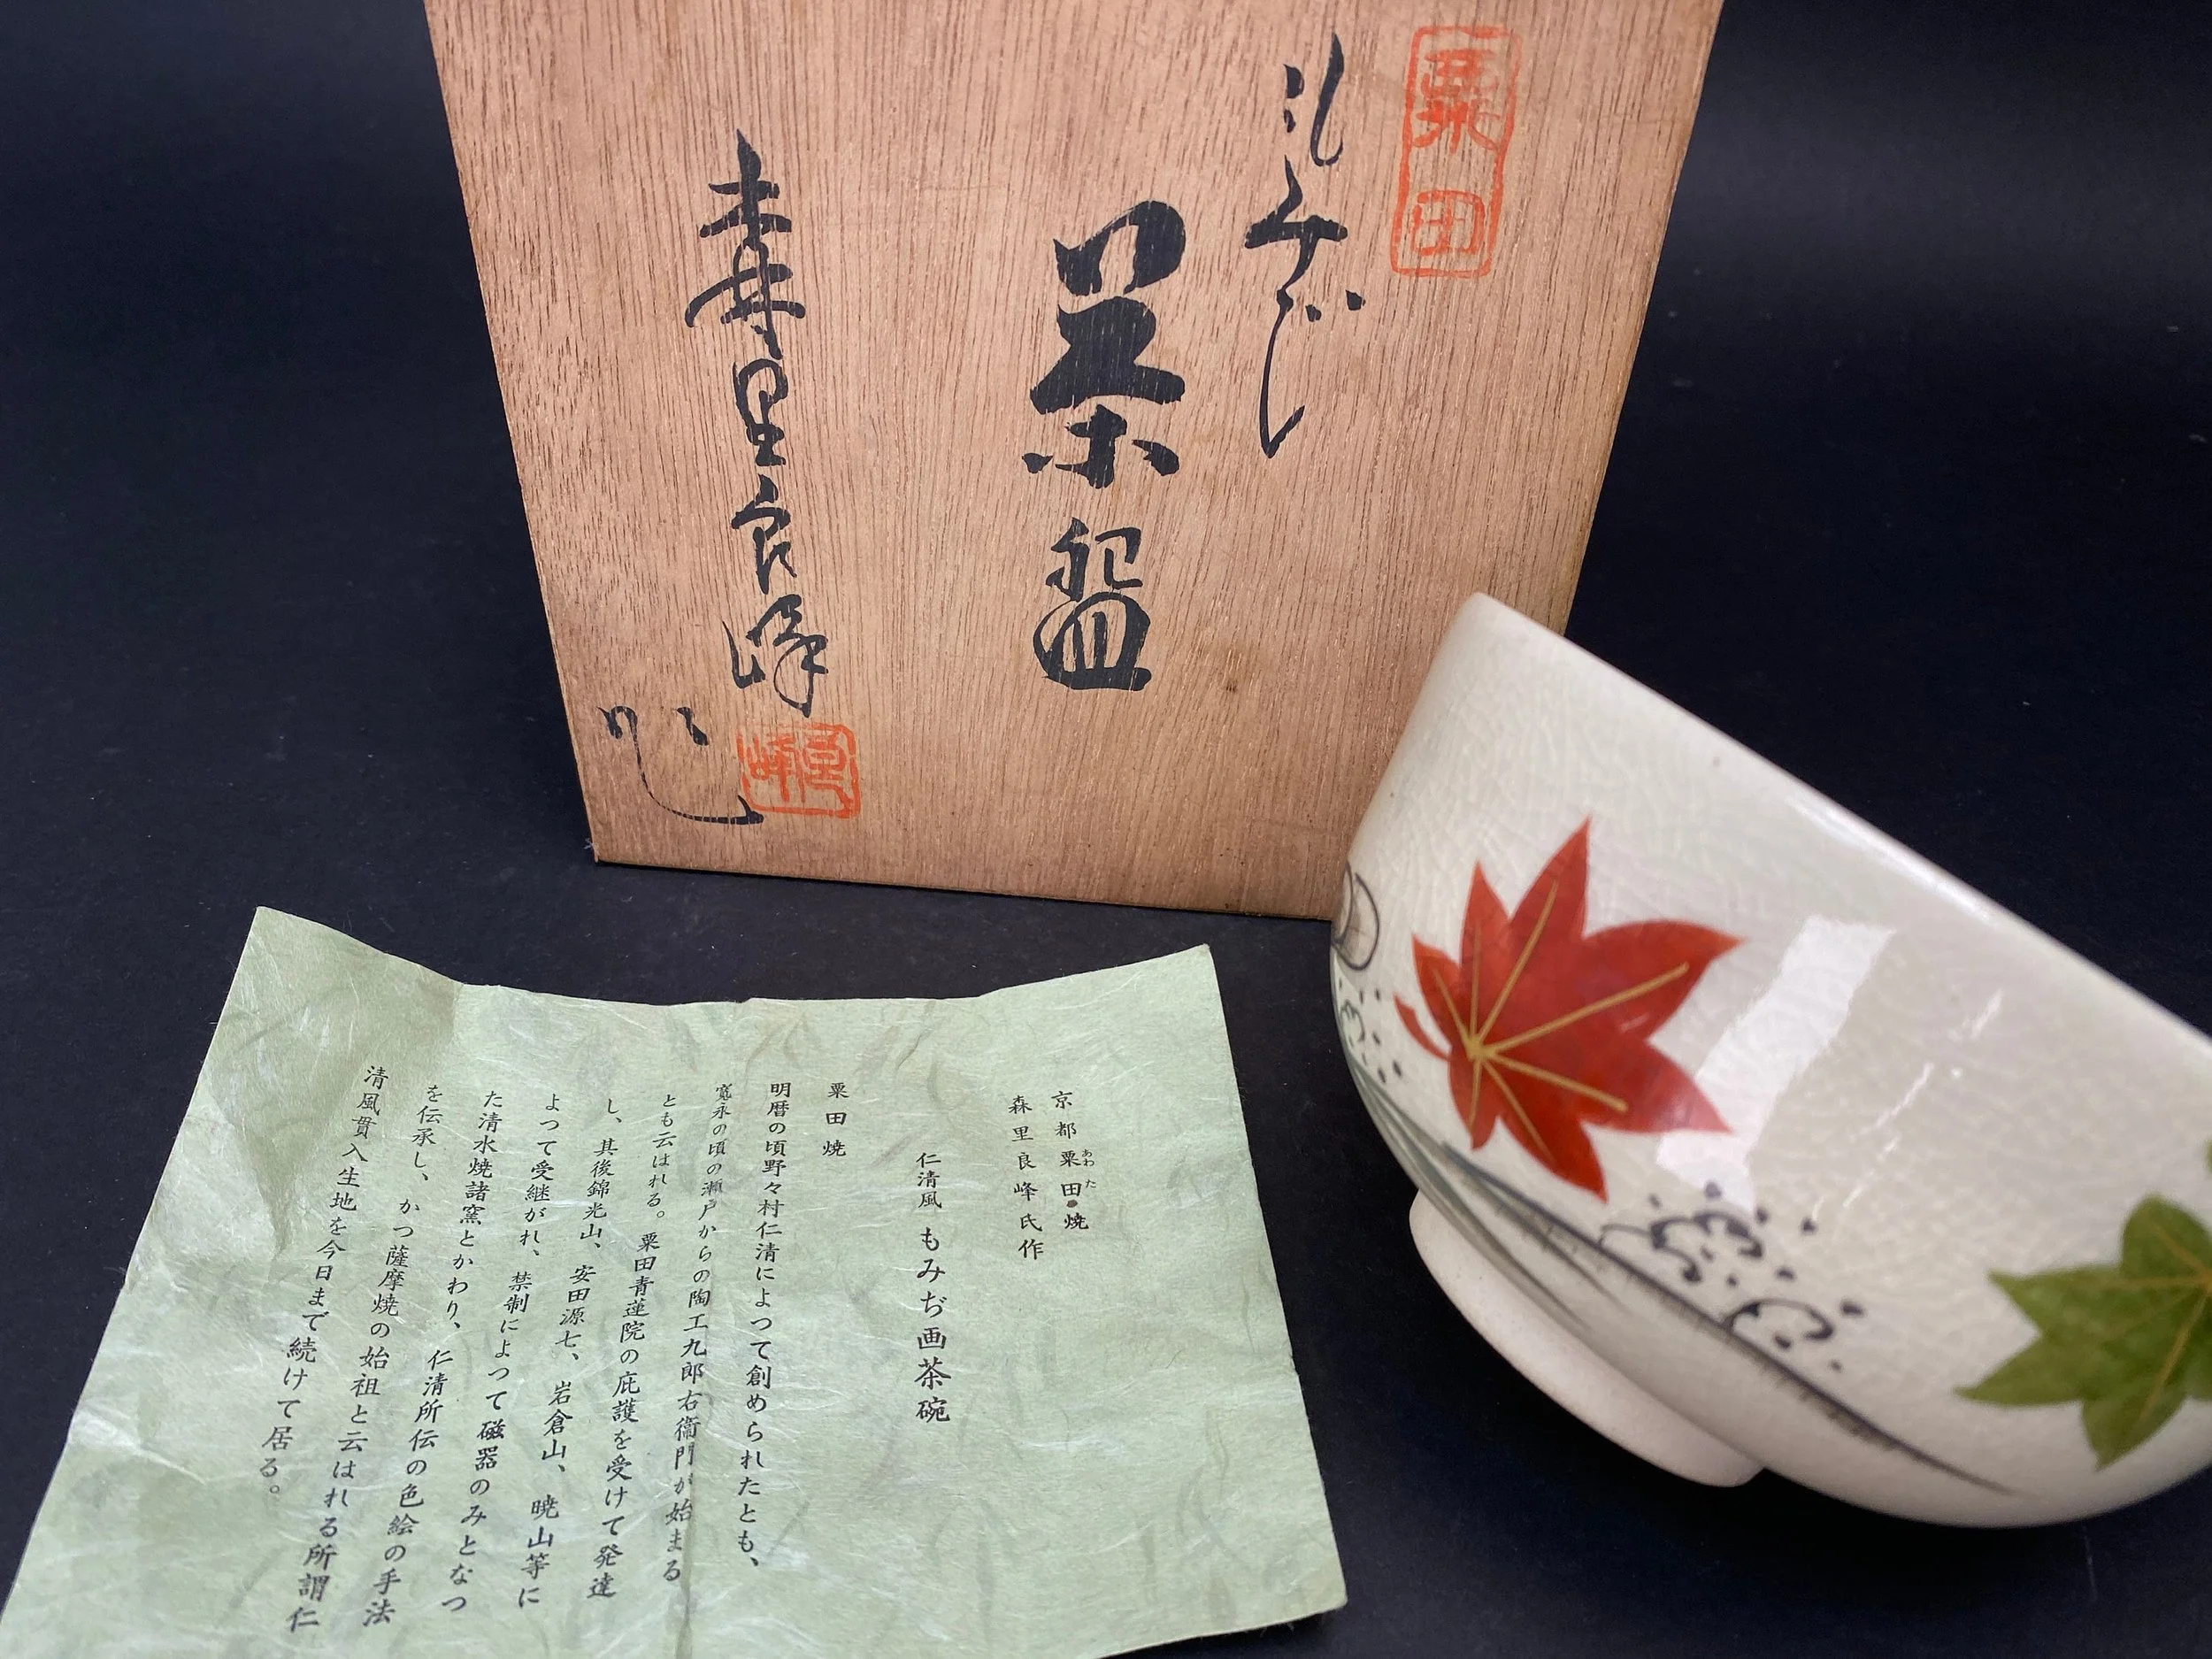 粟田
もみぢ
茶盌
森里良峰
作
良峰
京都粟田焼
あわた
森里良峰氏作
仁清風 もみぢ画茶碗
粟田焼
明暦の頃野々村仁清によつて創められたとも、
寛永の頃の瀬戸からの陶工九郎右衛門が始まる
とも云はれる。粟田青蓮院の庇護を受けて発達
し、其後錦光山、安田源七、岩倉山、暁山等に
よつて受継がれ、禁制によつて磁器のみとなつ
た清水焼諸窯とかわり、仁清所伝の色絵の手法
を伝承し、かつ薩摩焼の始祖と云はれる所謂仁
清風貫入生地を今日まで続けて居る。